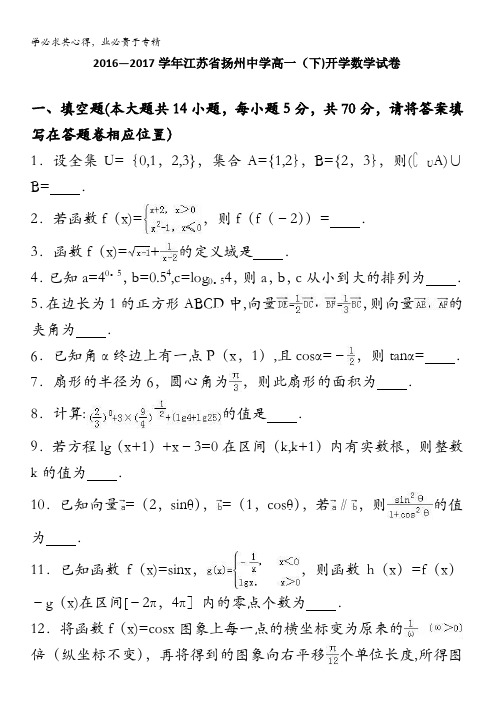 学必求其心得，业必贵于专精
2016—2017学年江苏省扬州中学高一（下)开学数学试卷
一、填空题(本大题共14小题，每小题5分，共70分，请将答案填
写在答题卷相应位置）
1．设全集U=｛0,1，2,3}，集合A={1,2}，B={2，3}，则(∁UA)∪
B=　　．
2．若函数f（x)={x+2，x＞0；x²-1，x≤0，则f（f（﹣2））=　　．
3．函数f（x)=√(x-1)+1/(x-2)的定义域是　　．
4．已知a=4^0．5，b=0.5^4,c=log0．5 4，则a，b，c从小到大的排列为　　．
5．在边长为1的正方形ABCD中,向量DE=1/2DC，BF=1/3BC,则向量AE，AF的
夹角为　　．
6．已知角α终边上有一点P（x，1）,且cosα=﹣1/2，则tanα=　　．
7．扇形的半径为6，圆心角为π/3，则此扇形的面积为　　．
8．计算:(2/3)^0+3×(9/4)^(-1/2)+(lg4+lg25)的值是　　．
9．若方程lg（x+1）+x﹣3=0在区间（k,k+1）内有实数根，则整数
k的值为　　．
10．已知向量a=（2，sinθ），b=（1，cosθ），若a∥b，则sin²θ/(1+cos²θ)的值
为　　．
11．已知函数f（x)=sinx，g(x)={-1/x，x＜0；lgx．x＞0，则函数h（x）=f（x）
﹣g（x)在区间[﹣2π，4π］内的零点个数为　　．
12．将函数f（x)=cosx图象上每一点的横坐标变为原来的1/ω（ω＞0）
倍（纵坐标不变），再将得到的图象向右平移π/12个单位长度,所得图